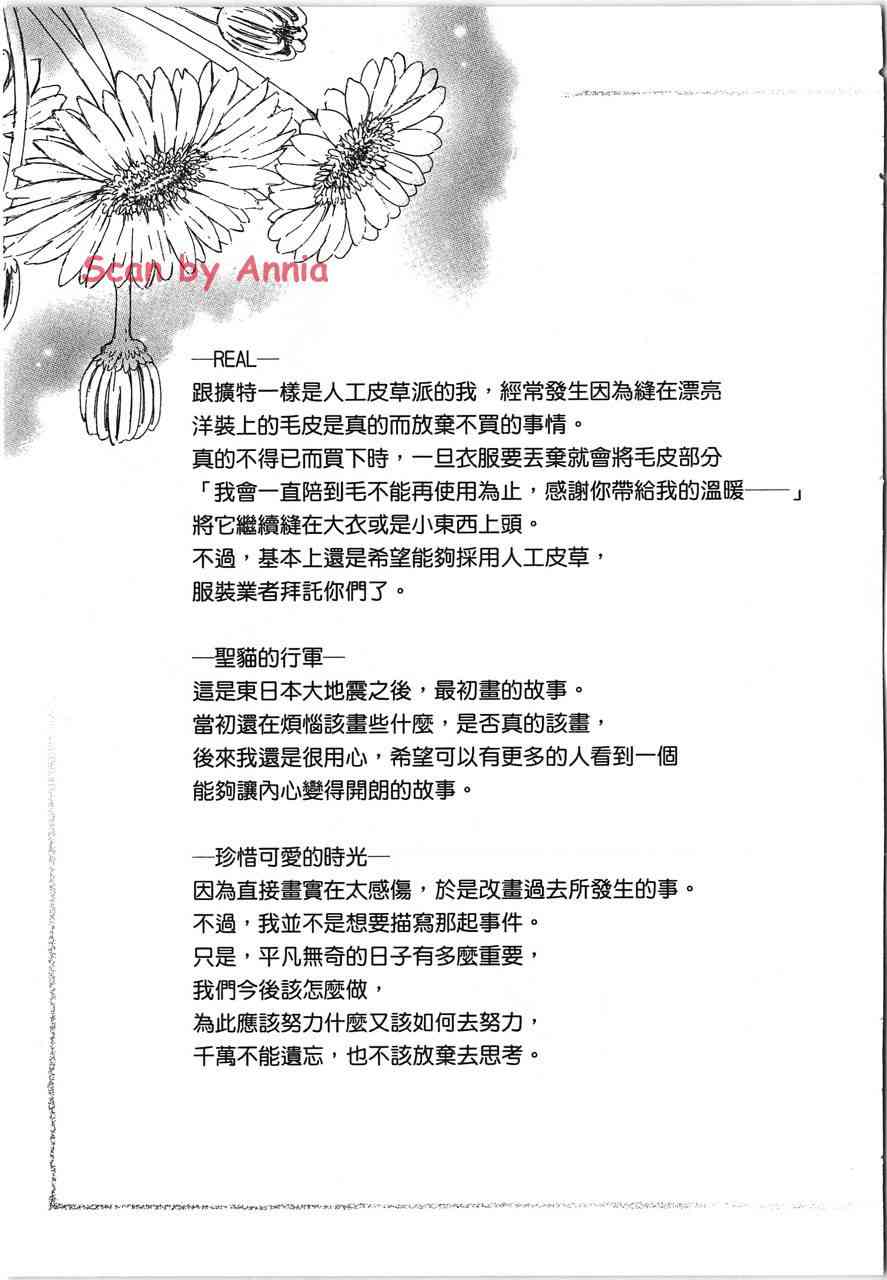 Scan by Annia
—REAL—
跟擴特一樣是人工皮草派的我，經常發生因為縫在漂亮
洋裝上的毛皮是真的而放棄不買的事情。
真的不得已而買下時，一旦衣服要丟棄就會將毛皮部分
「我會一直陪到毛不能再使用為止，感謝你帶給我的溫暖——」
將它繼續縫在大衣或是小東西上頭。
不過，基本上還是希望能夠採用人工皮草，
服裝業者拜託你們了。
—聖貓的行軍—
這是東日本大地震之後，最初畫的故事。
當初還在煩惱該畫些什麼，是否真的該畫，
後來我還是很用心，希望可以有更多的人看到一個
能夠讓內心變得開朗的故事。
—珍惜可愛的時光—
因為直接畫實在太感傷，於是改畫過去所發生的事。
不過，我並不是想要描寫那起事件。
只是，平凡無奇的日子有多麼重要，
我們今後該怎麼做，
為此應該努力什麼又該如何去努力，
千萬不能遺忘，也不該放棄去思考。